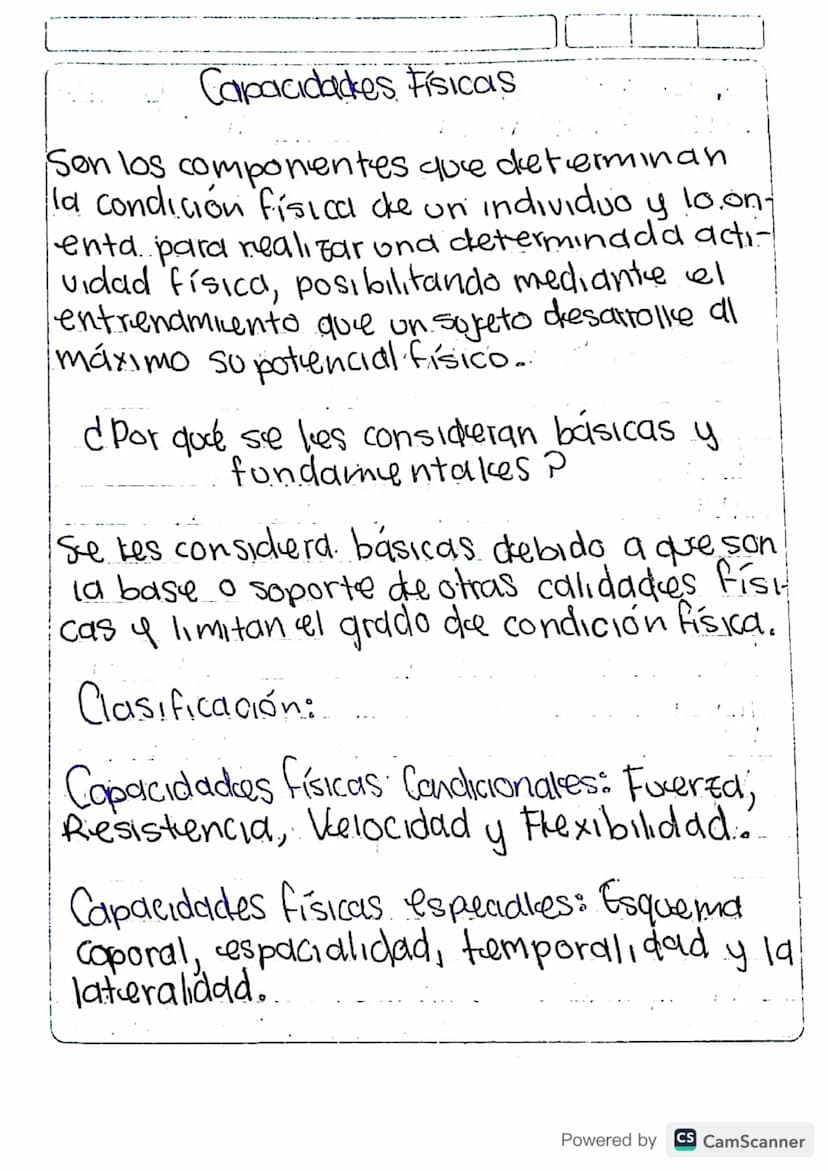 Capacidades Físicas
Son los componentes que determinan
la condición física de un individuo y lo ori-
enta para realizar una determinada acti-
vidad física, posibilitando mediante el
entrenamiento que un sujeto desarrolle al
máximo su potencial físico.
¿Por qué se les consideran básicas y
fundamentales?
Se les considera básicas debido a que son
la base o soporte de otras calidades físi-
cas y limitan el grado de condición física.
Clasificación:
Capacidades físicas Condicionales: Fuerza,
Resistencia, Velocidad y Flexibilidad.
Capacidades físicas espeaales: Esquema
coporal, espacialidad, temporalidad y la
lateralidad.
Powered by CS CamScanner